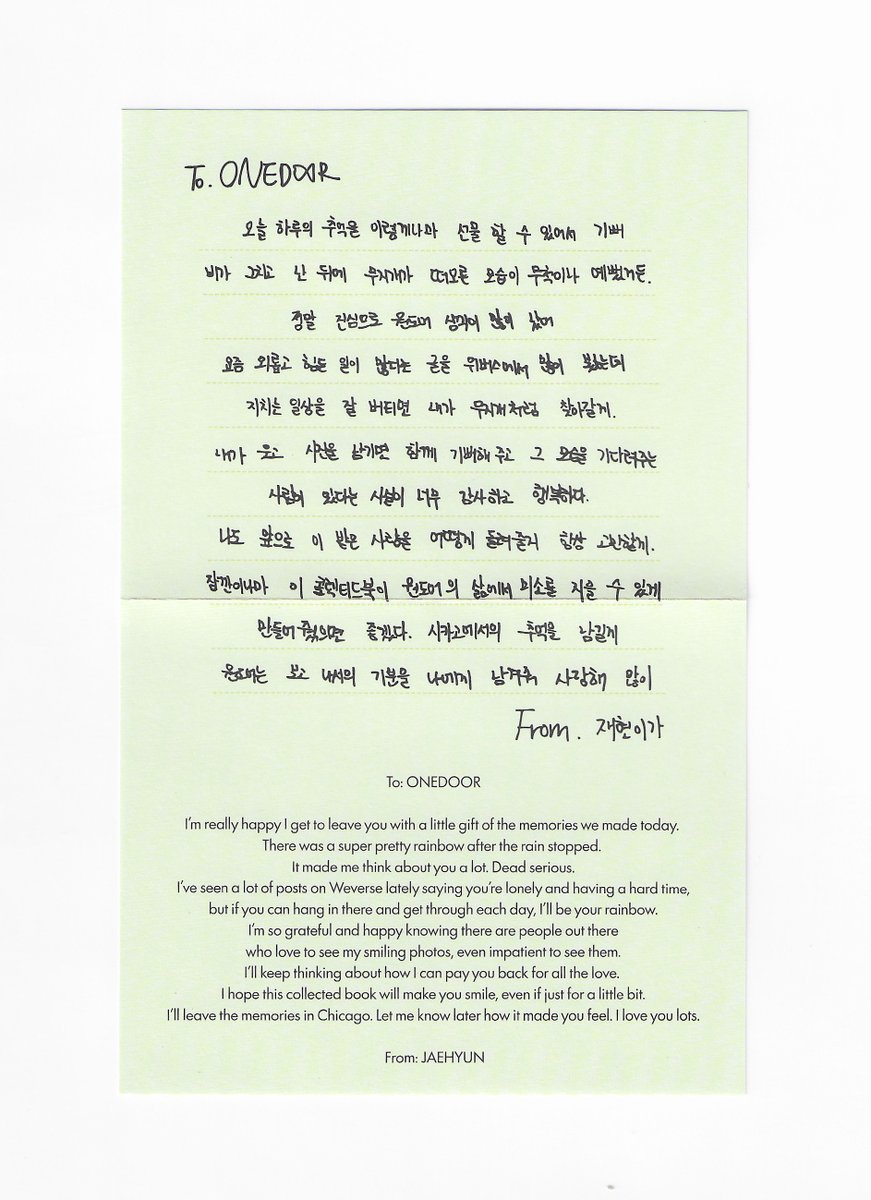 To. ONEDOOR
오늘 하루의 추억을 이렇게나마 선물 할 수 있어서 기뻐
비가 그치고 난 뒤에 무지개가 떠오른 모습이 무척이나 예뻤거든.
정말 진심으로 원도어 생각이 많이 났어
요즘 외롭고 힘든 일이 많다는 글을 위버스에서 많이 봤는데
지치는 일상을 잘 버티면 내가 무지개처럼 찾아갈게.
내가 웃고 사진을 남기면 함께 기뻐해 주고 그 모습을 기다려주는
사람이 있다는 사실이 너무 감사하고 행복하다.
나도 앞으로 이 받은 사랑을 어떻게 돌려줄지 항상 고민할게.
잠깐이나마 이 콜렉티드북이 원도어의 삶에서 미소를 지을 수 있게
만들어 줬으면 좋겠다. 시카고에서의 추억을 남길게
원도어는 보고 나서의 기분을 나에게 남겨줘 사랑해 많이
From. 재현이가
To: ONEDOOR
I'm really happy I get to leave you with a little gift of the memories we made today.
There was a super pretty rainbow after the rain stopped.
It made me think about you a lot. Dead serious.
I've seen a lot of posts on Weverse lately saying you're lonely and having a hard time,
but if you can hang in there and get through each day, I'll be your rainbow.
I'm so grateful and happy knowing there are people out there
who love to see my smiling photos, even impatient to see them.
I'll keep thinking about how I can pay you back for all the love.
I hope this collected book will make you smile, even if just for a little bit.
I'll leave the memories in Chicago. Let me know later how it made you feel. I love you lots.
From: JAEHYUN